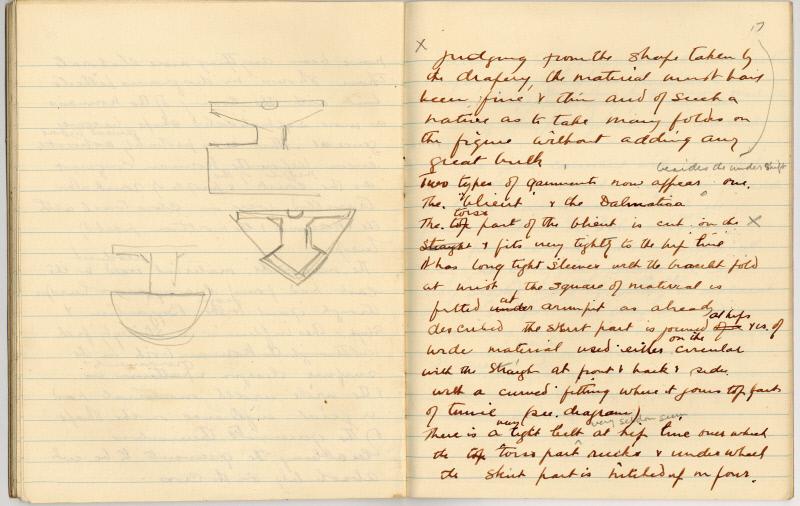 17
X
Judging from the shape taken by
the drapery, the material must have
been fine & thin and of such a
nature as to take many folds on
the figure without adding any
great bulk
besides the under shift
Two types of garments now appear one.
The "blient" & the Dalmatica
torso
The top part of the blient is cut on the X
Straight & fits very tightly to the hip line
It has long tight sleeves with the bracelet fold
at wrist, the square of material is
at
fitted under armpit as already
at hips
described the skirt part is joined & is of
on the
wide material used either circular
with the Straight at front & back & side.
with a curved fitting where it joins top part
of tunic (see diagram)
very very seldom seen
There is a tight belt at hip line over which
the top torso part rucks & under which
the skirt part is hitched up on four.